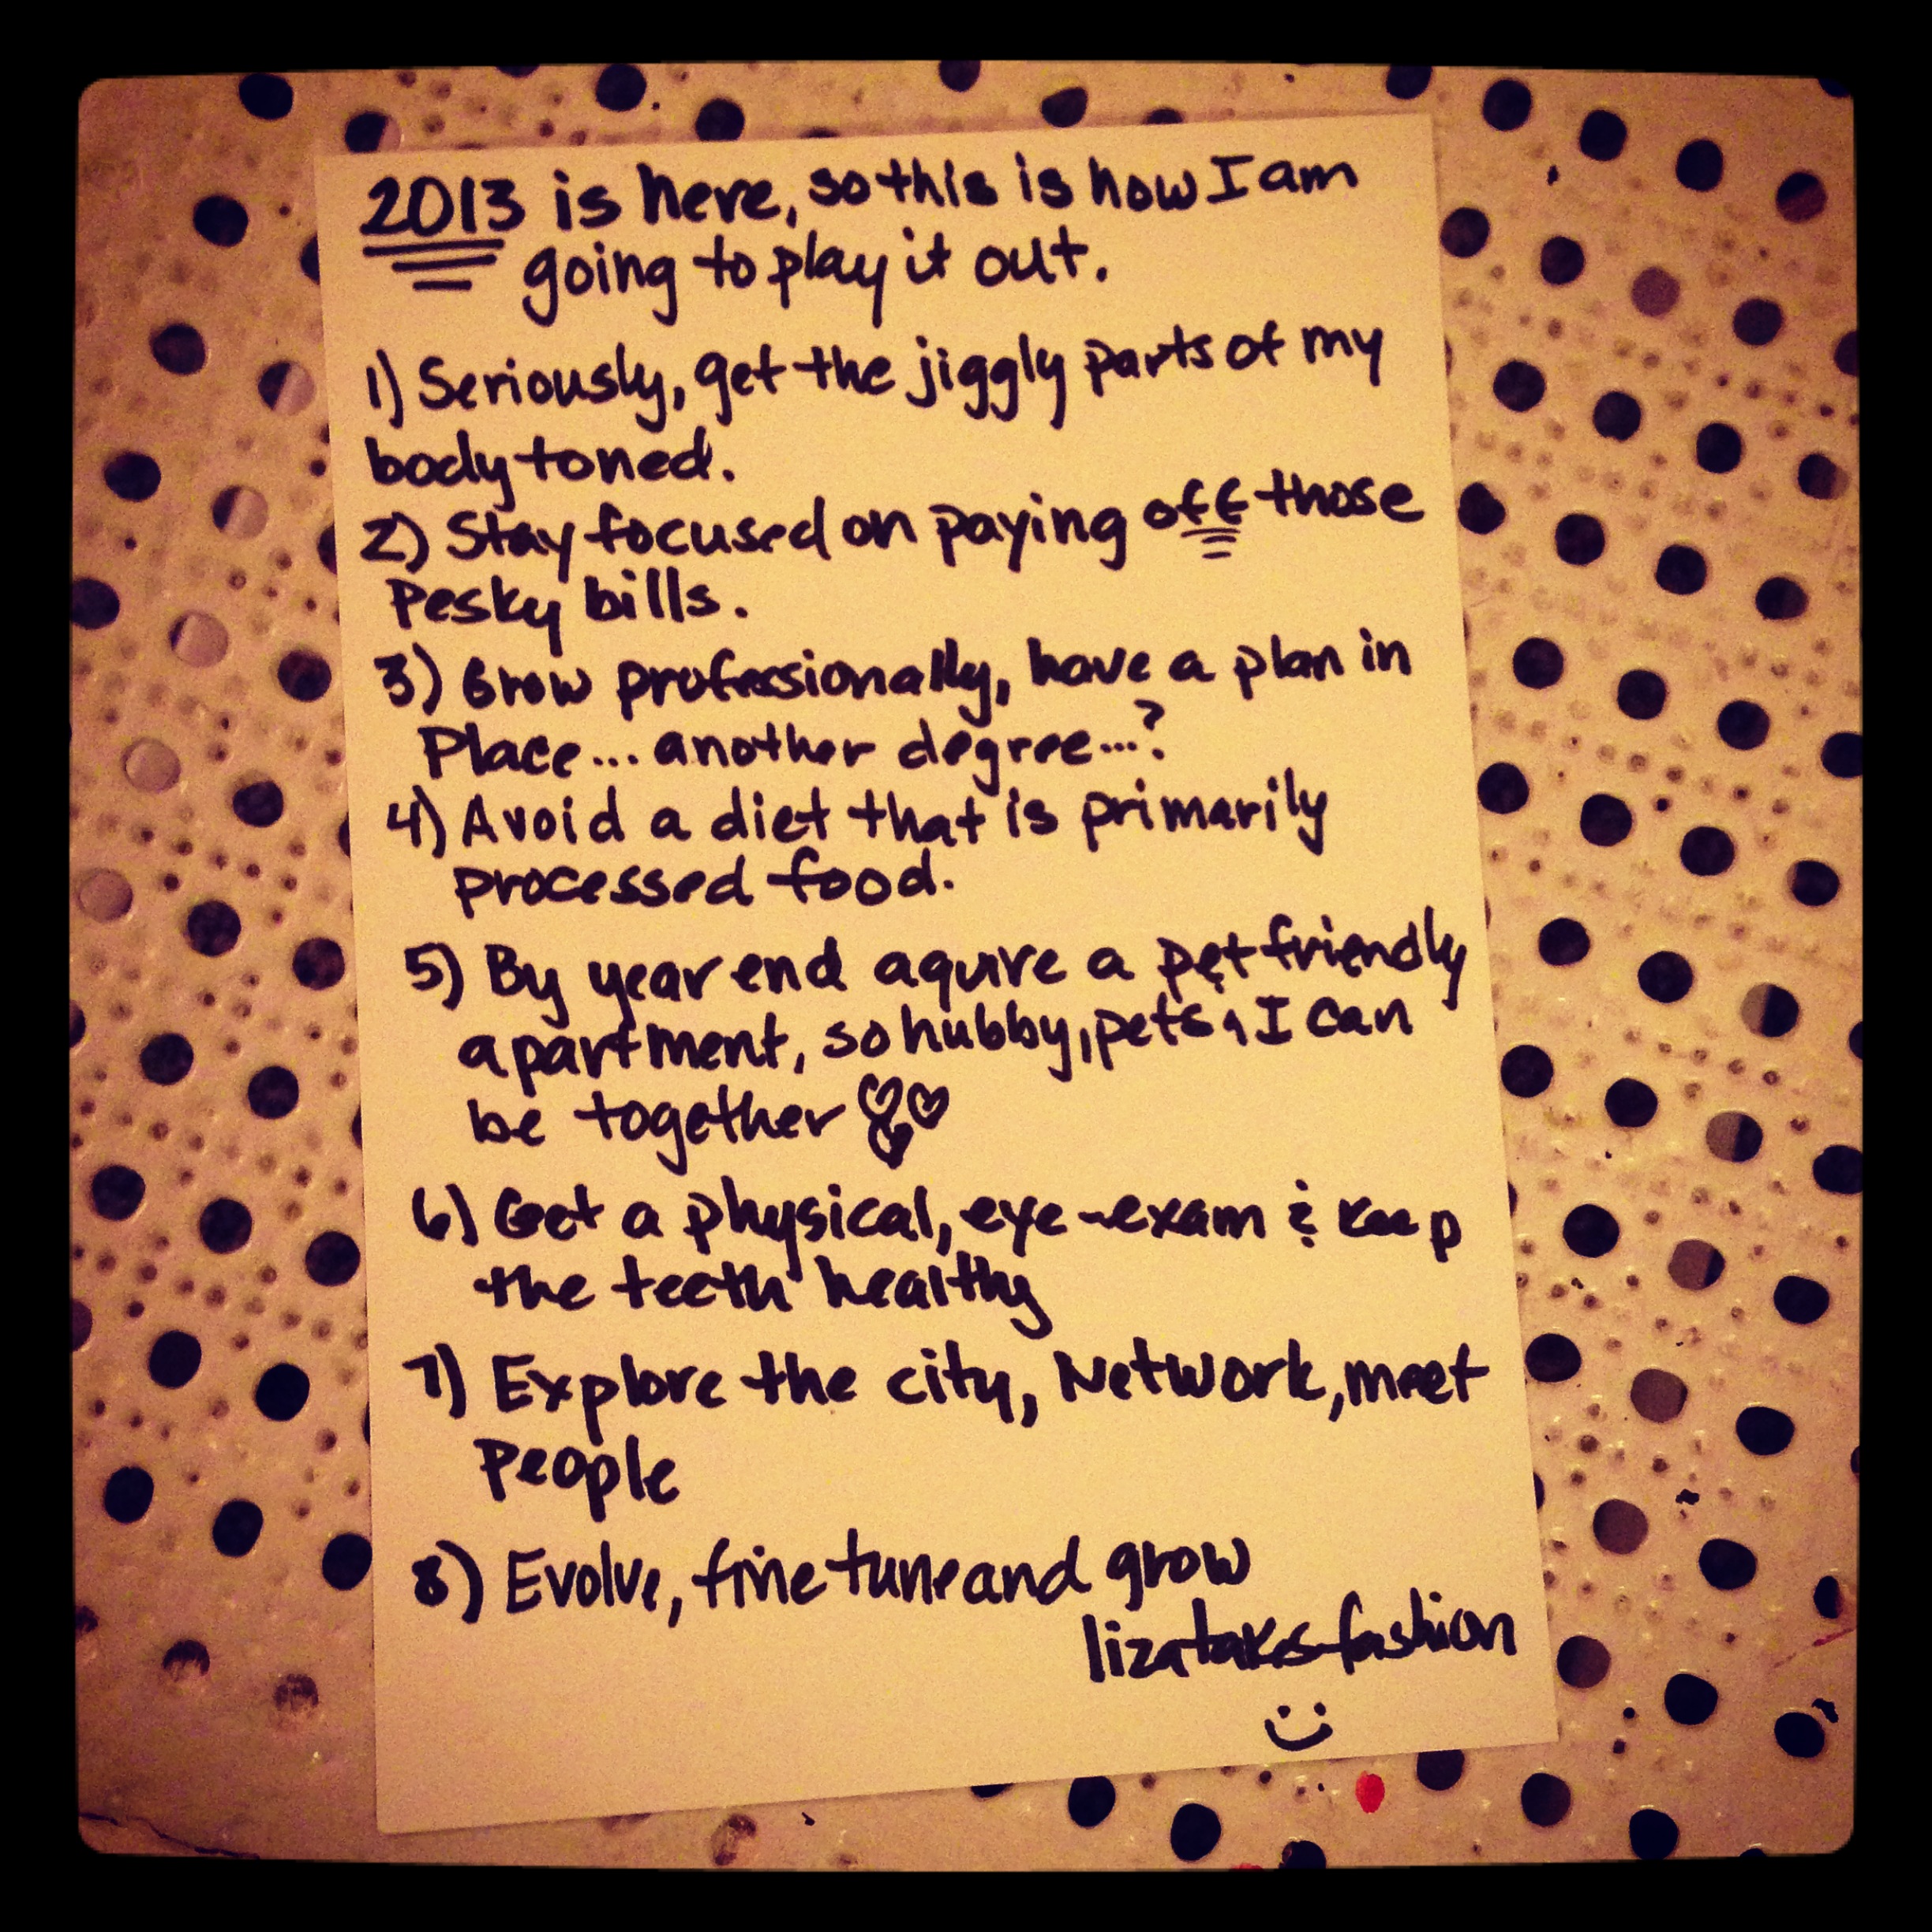 2013 is here, so this is how I am
going to play it out.
1) Seriously, get the jiggly parts of my
body toned.
2) Stay focused on paying off those
Pesky bills.
3) Grow professionally, have a plan in
Place... another degree...?
4) Avoid a diet that is primarily
processed food.
5) By year end aquire a pet friendly
apartment, so hubby, pets & I can
be together
6) Get a physical, eye-exam & keep
the teeth healthy
7) Explore the city, Network, meet
People
8) Evolve, fine tune and grow
lizatakesfashion